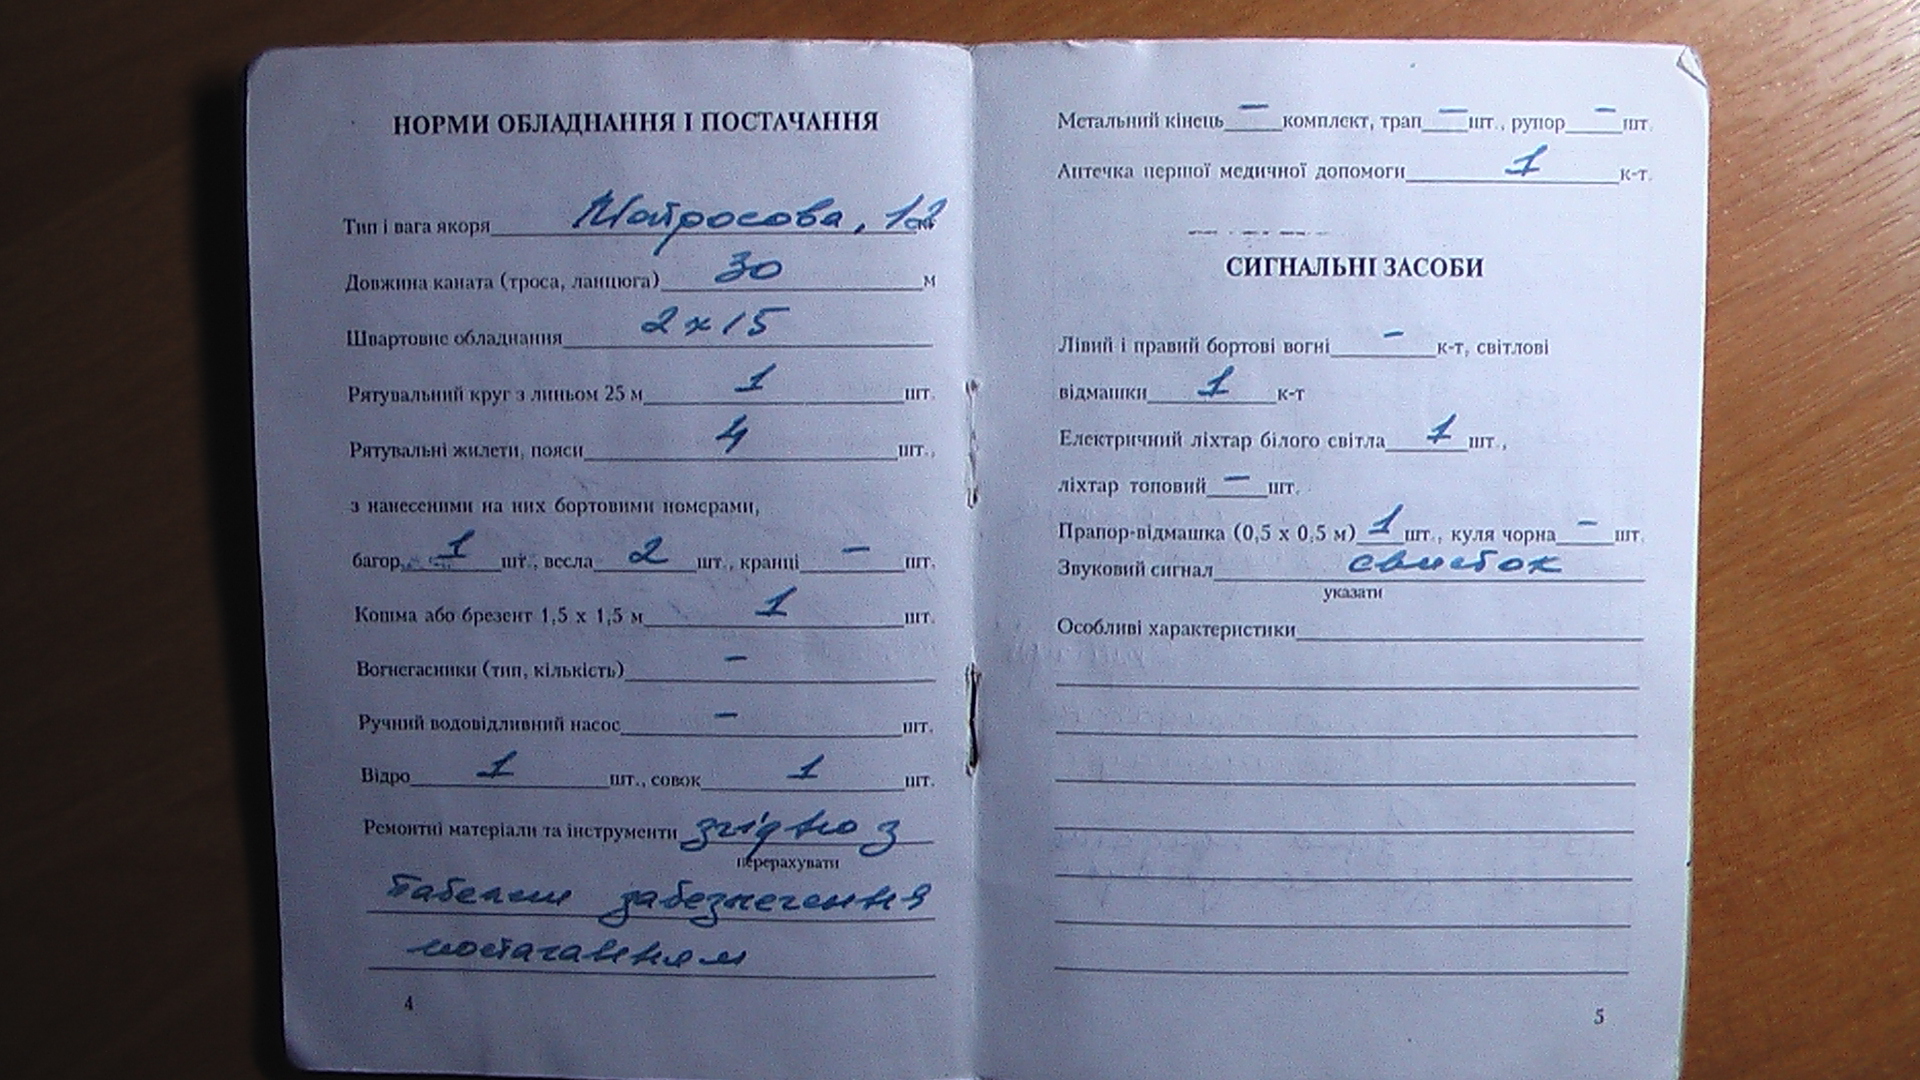 НОРМИ ОБЛАДНАННЯ І ПОСТАЧАННЯ
Тип і вага якоря Матросова, 12
Довжина каната (троса, ланцюга) 30 м
Швартовне обладнання 2 x 15
Рятувальний круг з линьом 25 м 1 шт.
Рятувальні жилети, пояси 4 шт.,
з нанесеними на них бортовими номерами,
багор 1 шт., весла 2 шт., кранці – шт.
Кошма або брезент 1,5 х 1,5 м 1 шт.
Вогнегасники (тип, кількість) –
Ручний водовідливний насос – шт.
Відро 1 шт., совок 1 шт.
Ремонтні матеріали та інструменти згідно з
перерахувати
забезпечення
постачанням
4
Метальний кінець – комплект, трап – шт., рупор – шт.
Аптечка першої медичної допомоги 1 к-т.
СИГНАЛЬНІ ЗАСОБИ
Лівий і правий бортові вогні – к-т, світлові
відмашки 1 к-т
Електричний ліхтар білого світла 1 шт.,
ліхтар топовий – шт.
Прапор-відмашка (0,5 х 0,5 м) 1 шт., куля чорна – шт.
Звуковий сигнал свисток
указати
Особливі характеристики
5